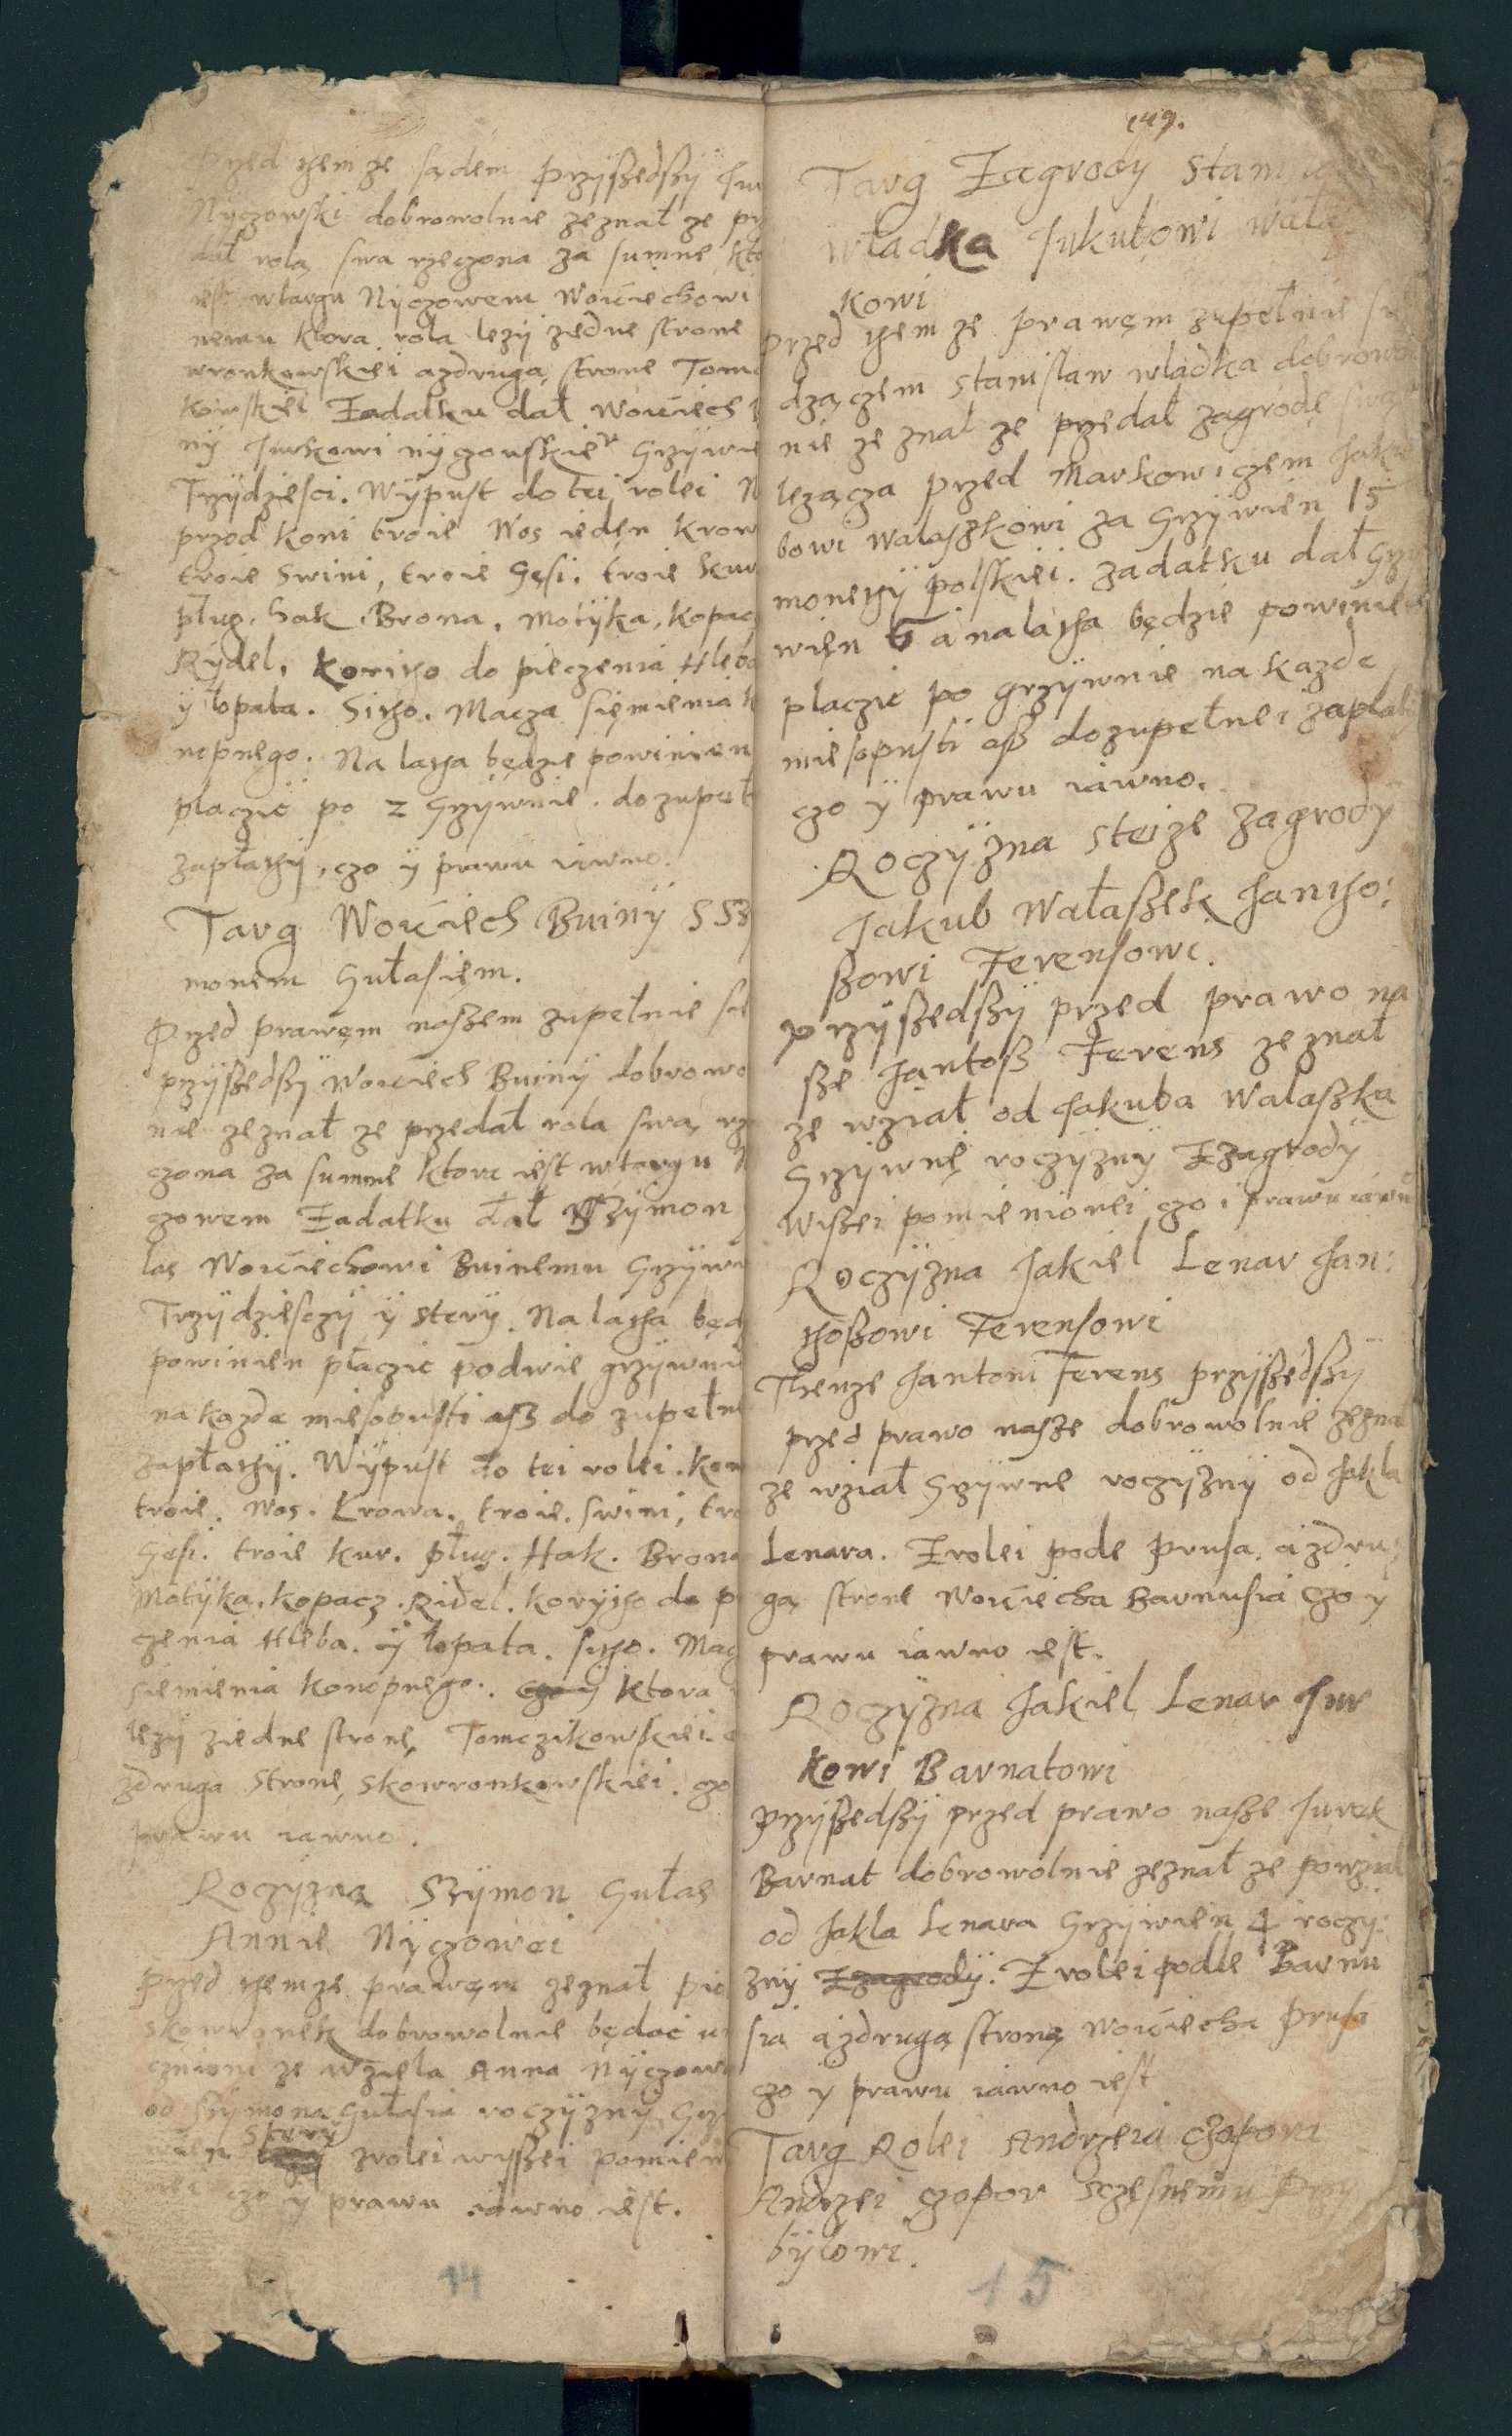 Przed them ze sądem Przyßedßÿ Jur
Nÿczowski dobrowolnie zeznał ze prz
dał rolą swa rzeczona za sumne kto
iest wtargu Nÿczowem Woiciechowi
nemu Ktora rola lezÿ ziedne strone
wronkowskiei azdrugą strone Tom
kowskiei Zadatku dał Woiciech
nÿ Jurkowi nÿczouskie Grzÿwie
Trzÿdziesci. Wÿpust do tei rolei N
przod koni troie Wos ieden krow
troie swini, troie Gęsi. troie kur
pług. hak. Brona. Motÿka. Kopac
Rÿdel. Koritho do pieczenia Hleba
ÿ łopata. Sitho. Macza siemienia k
nopnego. Na latha będzie powinien
placzić po 2 Grzÿwnie. do zupeł
zapłathÿ, czo ÿ prawu iawno.
Targ Woiciech Buinÿ SSz
monem Gułasiem.
Przed prawem naßem zupełnie są
przÿßedßÿ Woiciech Buinÿ dobrowo
nie zeznał ze przedał rola swą rz
czona za summe ktora iest wtargu N
czowem Zadatku dał Szÿmon
las Woiciechowi Buinemu Grzÿwi
Trzÿdziesczÿ ÿ sterÿ. Na latha będ
powinien płaczic podwie grzÿwni
na kozde miesopusti asz do zupełn
zapłathÿ. Wÿpust do tei rolei. Kon
troie. Wos. Krowa. troie. swini, tro
Gęsi. troie kur. pług. Hak. Brona
Motÿka. Kopacz. Ridel. Korÿtho do p
czenia Hleba. ÿ łopata. sitho. Mac
siemienia Konopnego. ktora
lezÿ ziedne stronę Tomczikowskiei a
zdruga stronę skowronkowskiei. czo
prawu iawno.
Roczÿzna Szÿmon Gułas
Annie Nÿczowei
Przed themze prawem zeznał pio
skowronek dobrowolnie będac u
cznioni ze wzięla Anna Nÿczow
od Szÿmona Gułasia roczÿznÿ Grz
wien sterÿ zrolei wÿßei pomien
nei czo ÿ prawu iawno iest.
14
149.
Targ Zagrody Stanis
władka Jukubowi wała
kowi
Przed them ze prawęm zupełnie są
dzączem stanisław władka dobrowo
nie ze znał ze przedał zagrodę swą
lezącza przed Markowiczem Jaku
bowi walaszkowi za Grzÿwien 15
monethÿ polskiei. zadatku dał Grzÿ
wien 6 a nalatha będzie powinien
placzic po grzÿwnie na kazde
miesopusti aß dozupełnei zapłatÿ
czo ÿ prawu iawno.
Roczÿzna steize zagrodÿ
Jakub Wałaßek Jantho:
ßowi Ferensowi.
Przÿßedßÿ przed prawo na
ße Jantoß Ferens zeznał
ze wział od Jakuba Walaßka
Grzÿwnę roczÿznÿ Zzagrodÿ
Wißei pomienionei czo i prawu iawn
Roczÿzna Jakiel Lenar Jan:
thoßowi Ferensowi
Thenze Jantoni Ferens przÿßedßÿ
przed prawo nasze dobrowolnie zeznał
ze wział Grzÿwne roczÿznÿ od Jakla
Lenara. Zrolei pode Prusa. a zdru
gą strone Woiciecha Barnusia czo y
prawu iawno iest.
Roczÿzna Jakiel Lenar Jur
kowi Barnatowi
Przÿßedßÿ przed prawo naße Jurek
Barnat dobrowolnie zeznał ze powział
od Jakla Lenara Grzÿwien 4 roczÿ:
znÿ Zzagrodÿ. Zrolei podle Barnu
sia a zdrugą stronę Woiciecha Prusa
czo ÿ prawu iawno iest
Targ Rolei Andrzeia Czopora
Andrzei czopor sczęsnemu Przÿ
bÿłowi.
15